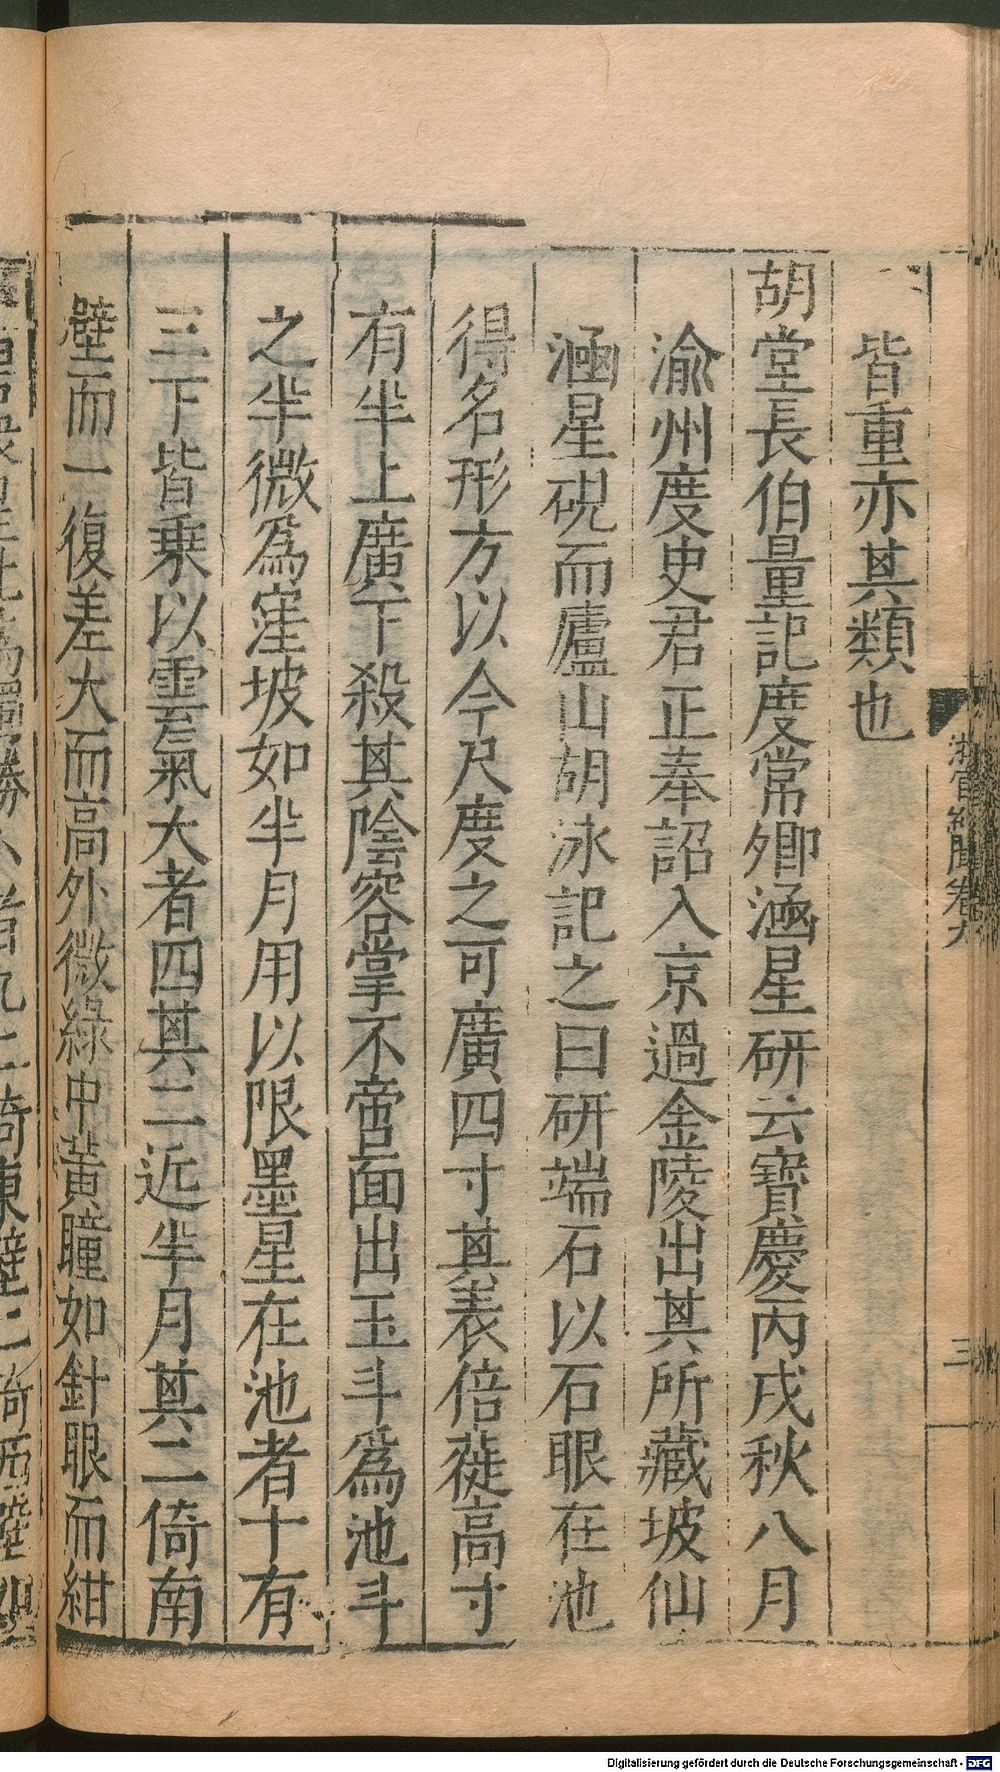 皆重亦其類也
胡堂長伯量記度常卿涵星硏云寶慶丙戌秋八月
渝州度史君正奉詔入京過金陵出其所藏坡仙
涵星硯而廬山胡泳記之曰硏端石以石眼在池
得名形方以今尺度之可廣四寸其袤倍蓰高寸
有半上廣下殺其陰容掌不啻面出玉斗爲池斗
之半微爲窪坡如半月用以限墨星在池者十有
三下皆乗以雲氣大者四其二近半月其二倚南
壁而一復差大而高外微綠中黃瞳如針眼而紺
卷九
三
Digitalisierung gefördert durch die Deutsche Forschungsgemeinschaft - DFG